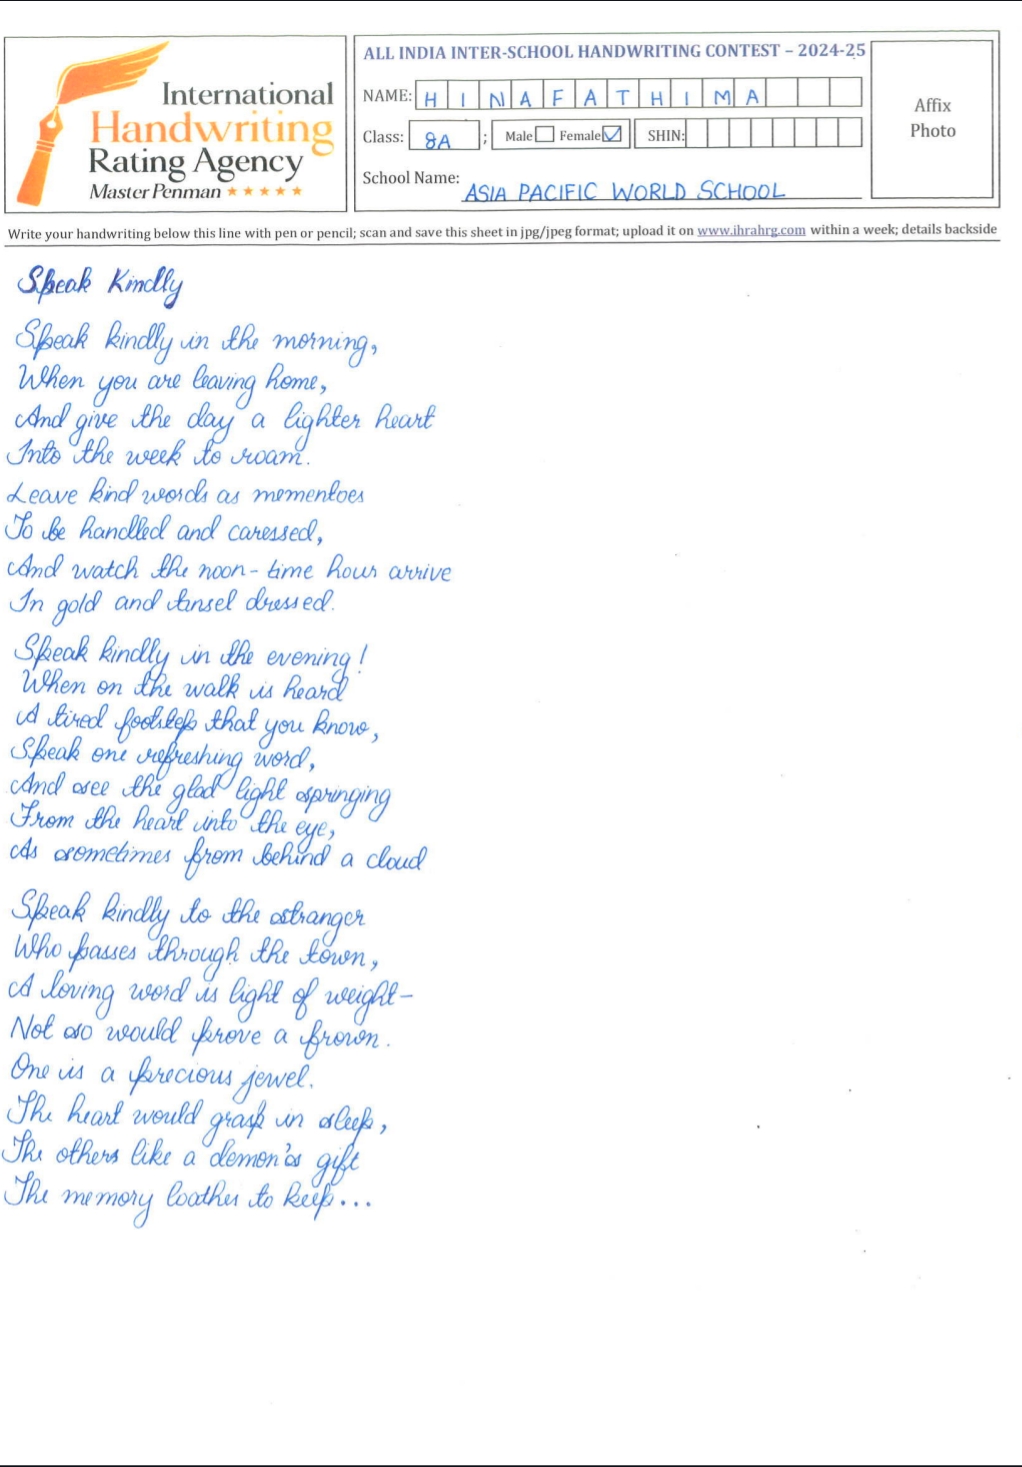 International
Handwriting
Rating Agency
Master Penman
ALL INDIA INTER-SCHOOL HANDWRITING CONTEST – 2024-25
NAME: HINAFATHIMA
Class: 8A ; Male Female SHIN:
School Name: ASIA PACIFIC WORLD SCHOOL
Affix
Photo
Write your handwriting below this line with pen or pencil; scan and save this sheet in jpg/jpeg format; upload it on www.ihrahrg.com within a week; details backside
Speak Kindly
Speak kindly in the morning,
When you are leaving home,
And give the day a lighter heart
Into the week to roam.
Leave kind words as mementoes
To be handled and caressed,
And watch the noon-time hour arrive
In gold and tinsel dressed.
Speak kindly in the evening!
When on the walk is heard
A tired footstep that you know,
Speak one refreshing word,
And see the glad light springing
From the heart into the eye,
As sometimes from behind a cloud
Speak kindly to the stranger
Who passes through the town,
A loving word is light of weight-
Not so would prove a frown.
One is a precious jewel.
The heart would grasp in sleep,
The others like a demon's gift
The memory loathes to keep...